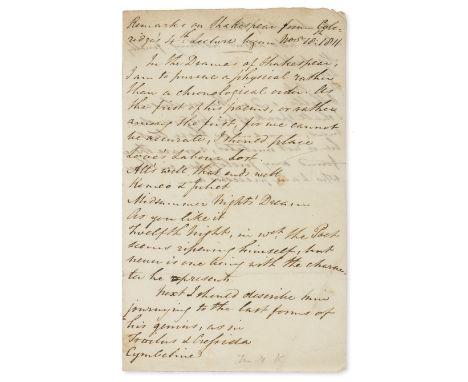 Remarks on Shakespear from Cole-
ridge's 4th Lecture begun Novr 18. 1811
In the Dramas of Shakespear,
I am to pursue a physical rather
than a chronological order. As
the first of his poems, or rather
among the first, for we cannot
be accurate, I should place
Love's Labour Lost.
All's well that ends well
Romeo & Juliet
Midsummer Night's Dream
As you like it
Twelfth Night, in wch. the Poet
seems ripening himself, but
never is one being with the charac-
ter he represents
next I should describe him
journeying to the last forms of
his genius; as in
Troilus & Cressida
Cymbeline